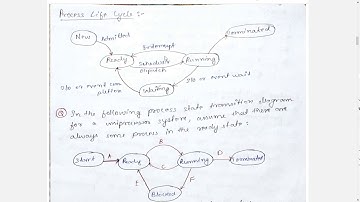 Process Life Cycle :-
New
Admitted
Interrupt
Terminated
Ready
Scheduler
Running
Dispatch
I/o or event com
pletion
Waiting
I/o or event wait
Q In the following process state transition diagram
for a uniprocessor system, assume that there are
always some process in the ready state:
Start
A
Ready
B
C
Running
D
Terminated
E
F
Blocked